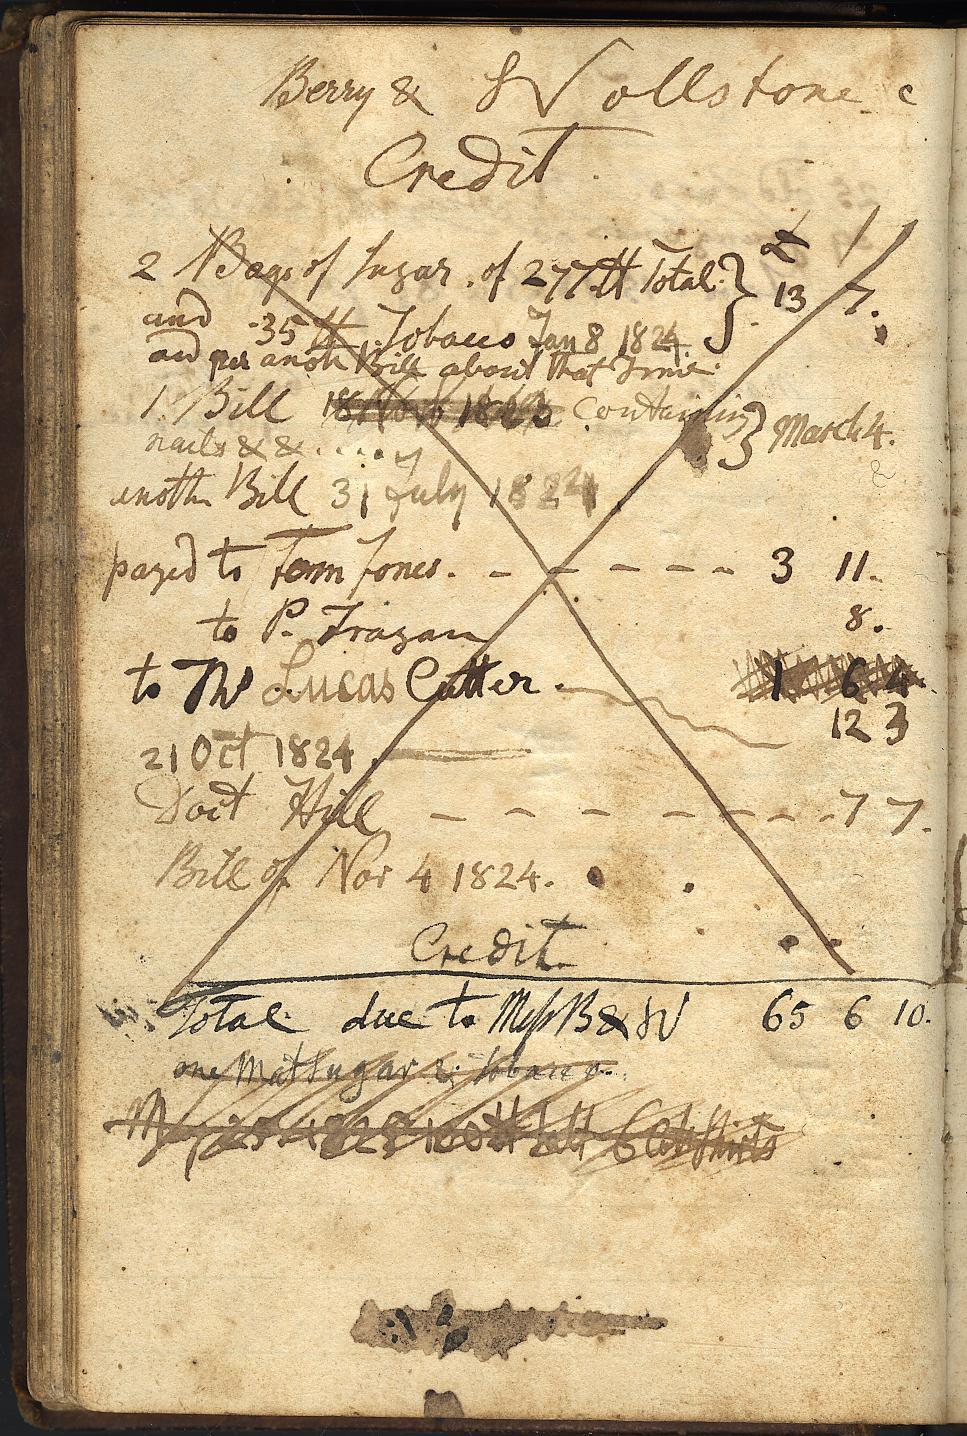 Berry & Wollstone c
Credit
2 Bags of Sugar. of 277 lb Total £
and 35 lb Tobacco Jan 8 1824 13 7.
and per anoth Bill about that Time.
1 Bill Containin March 4.
nails & & .....
anoth Bill 31 July 1824 &
payed to Jones. - - - - - - 3 11.
to P. Fragan 8.
to Thos Lucas Cutter. 1 6 4
12 3
21 Oct 1824.
Doct Hill - - - - - - 7 7.
Bill of Nov 4 1824.
Credit
Total due to Mess B & W 65 6 10.
one Mat Sugar & tobacco.